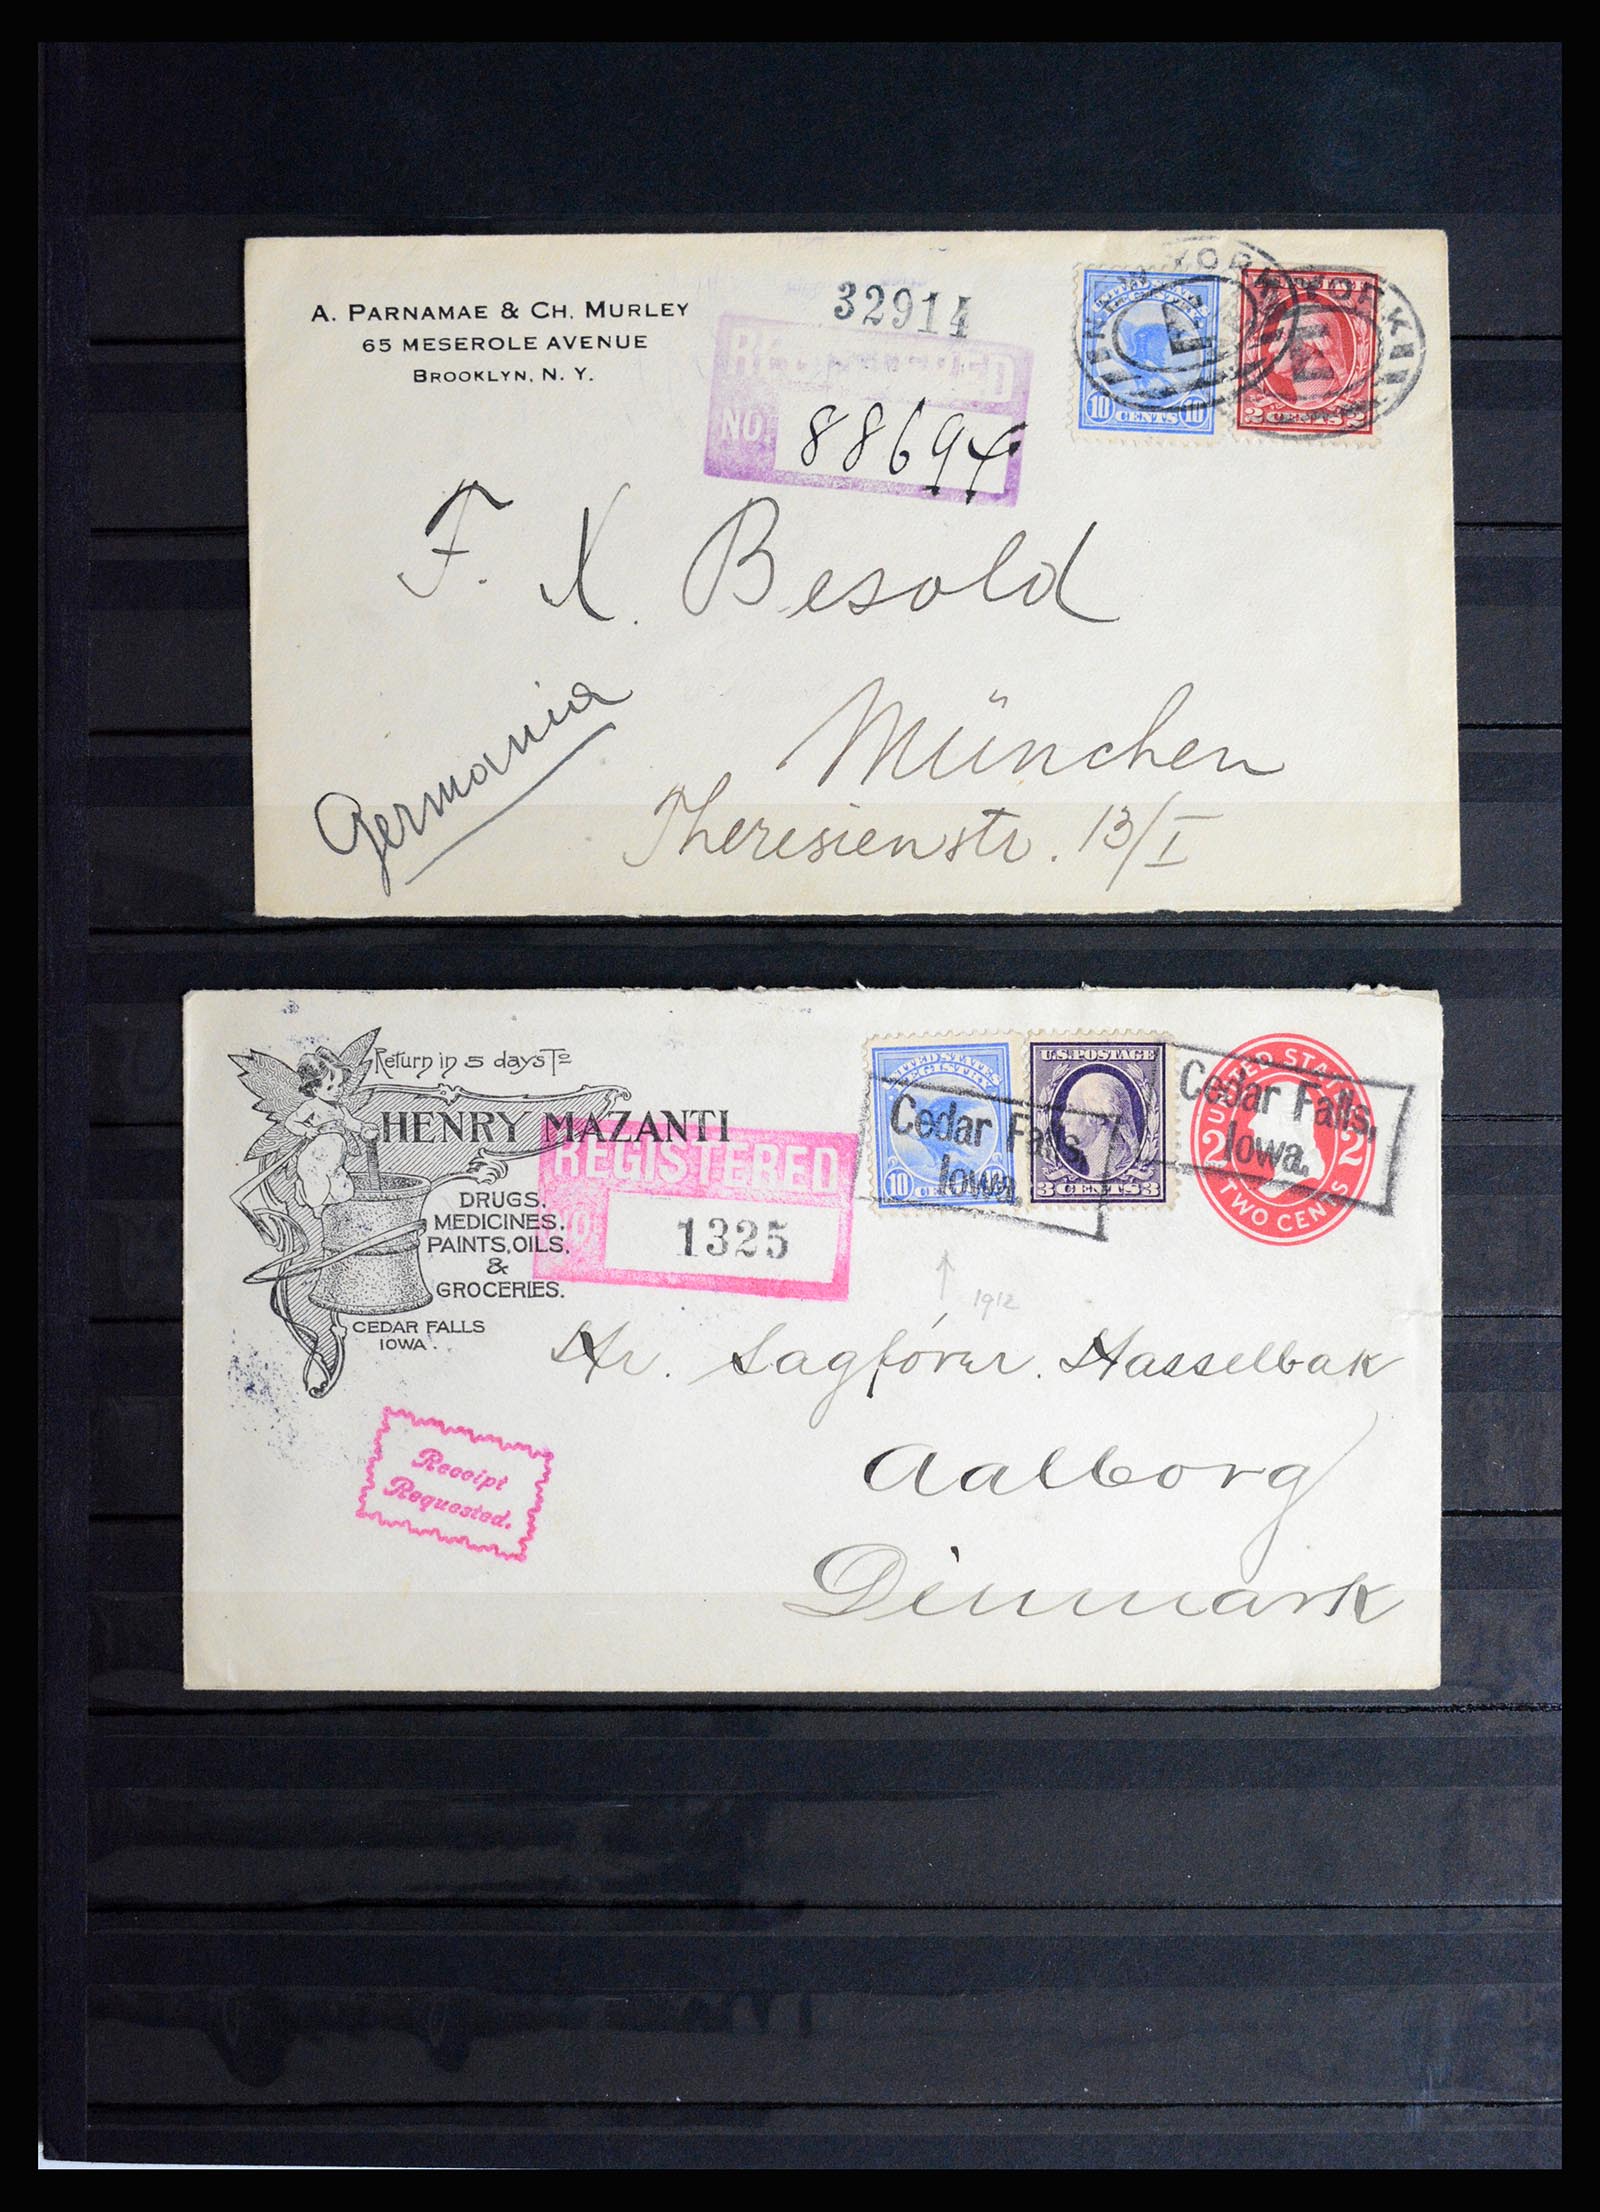 A. PARNAMAE & CH. MURLEY
65 MESEROLE AVENUE
BROOKLYN, N. Y.
32914
REGISTERED
NO.
88694
NEW YORK
UNITED STATES
REGISTRY
10 CENTS 10
2 CENTS 2
F. X. Besold
München
Theresienstr. 13/I
Germania
Return in 5 days To
HENRY MAZANTI
DRUGS,
MEDICINES,
PAINTS, OILS,
&
GROCERIES.
CEDAR FALLS
IOWA.
REGISTERED
NO.
1325
UNITED STATES
REGISTRY
10 CENTS
U.S. POSTAGE
3 CENTS 3
Cedar Falls,
Iowa.
UNITED STATES
2 2
TWO CENTS
Cedar Falls,
Iowa.
1912
Hr. Sagförer. Hasselbak
Aalborg
Denmark
Receipt
Requested.